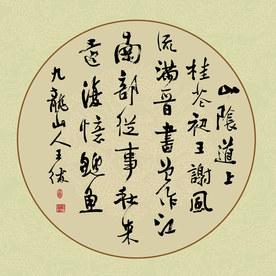 山陰道上
桂花初王謝風
流滿晉書曾作江
南部從事秋來
還復憶鱸魚
九龍山人王紱